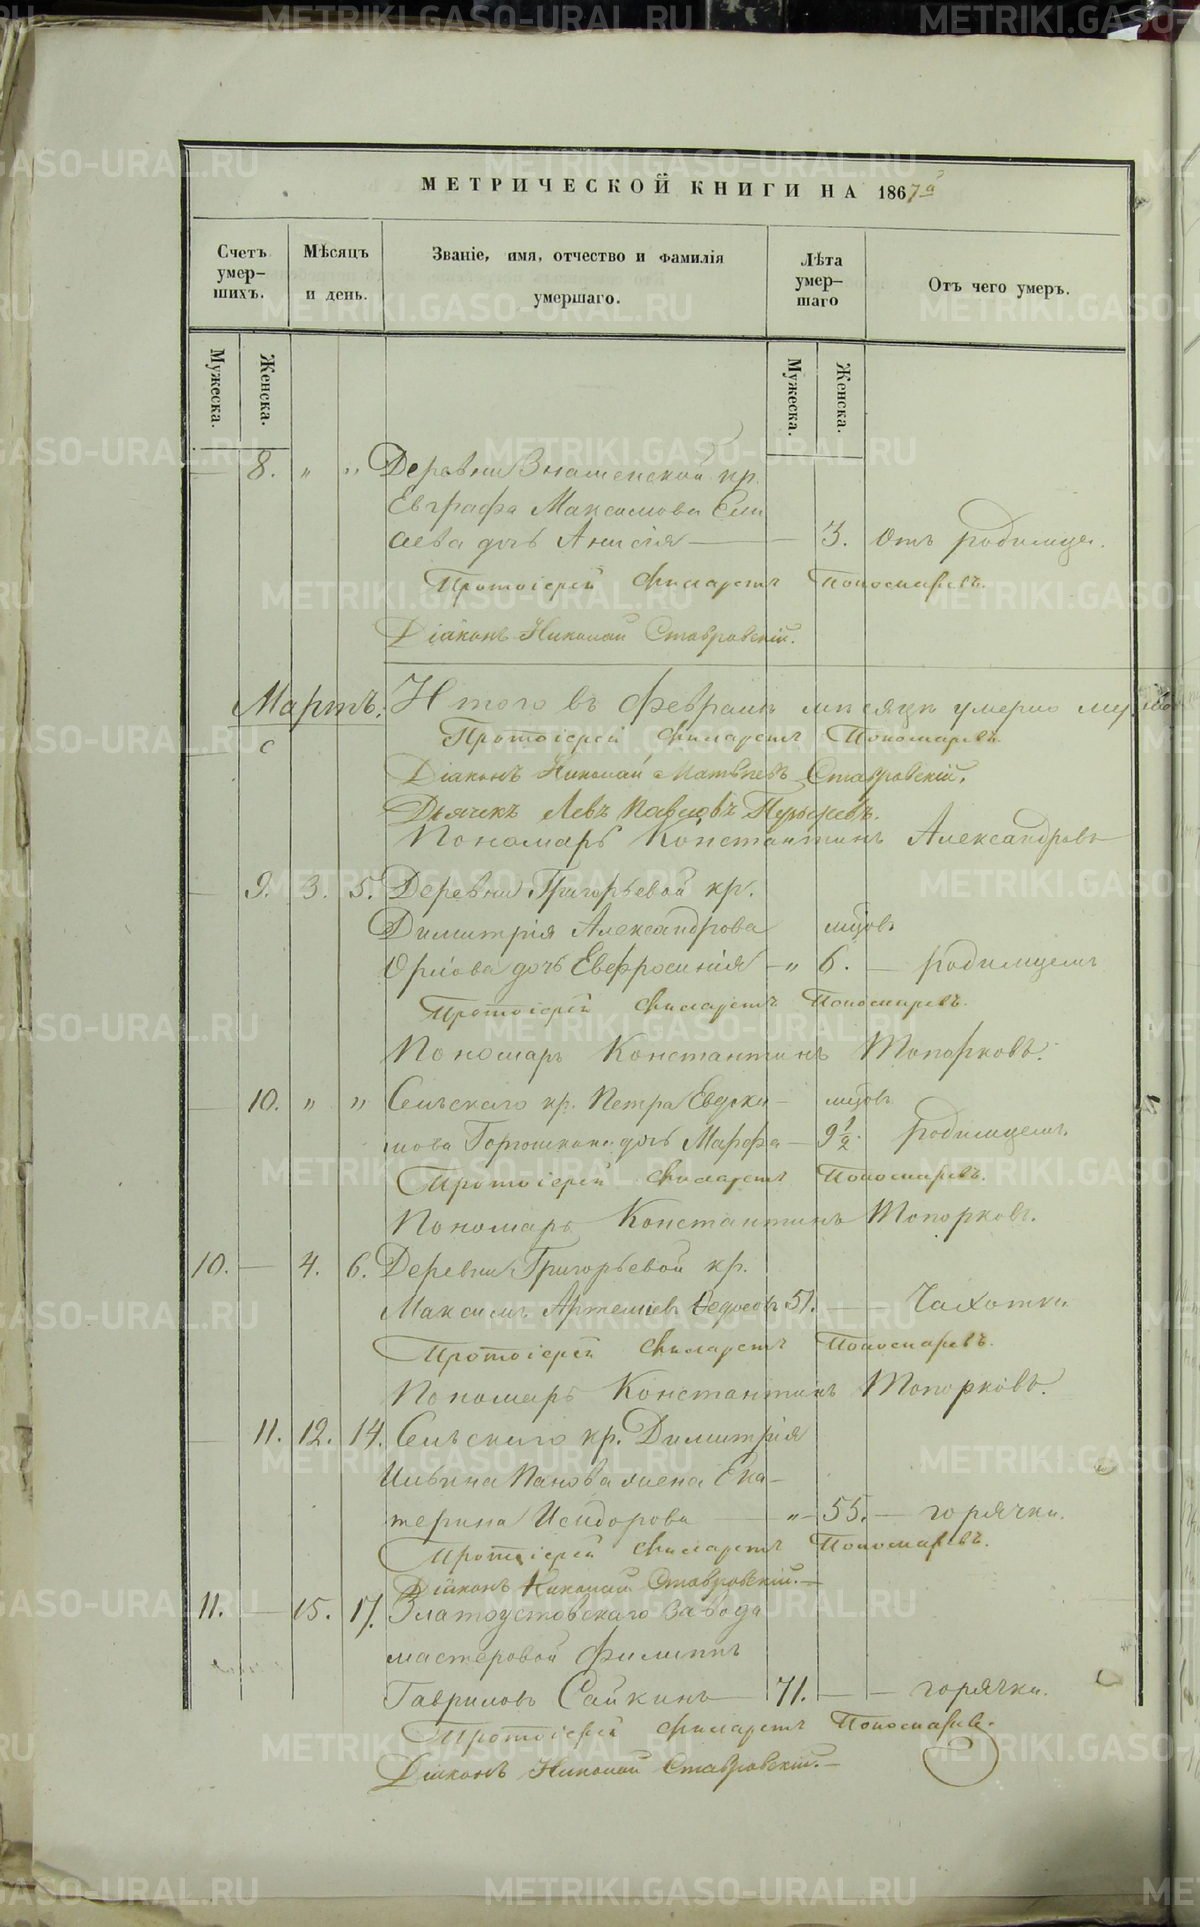 МЕТРИЧЕСКОЙ КНИГИ НА 1867 а
Счетъ умер-шихъ.
Мѣсяцъ и день.
Званіе, имя, отчество и фамилія умершаго.
Лѣта умер-шаго
Отъ чего умеръ.
Мужеска. Женска. Мужеска. Женска.
8. " " Деревни Знаменской кр.
Евграфа Максимова Ели
сеева дочь Анисія — 3. Отъ родимца.
Протоіерей Филаретъ Пономаревъ.
Діаконъ Николай Ставровскій.
Мартъ. Итого въ Февралѣ мѣсяцѣ умерло
Протоіерей Филаретъ Пономаревъ.
Діаконъ Николай Матвѣевъ Ставровскій.
Дьячекъ Левъ Павловъ
Пономарь Константинъ Александровъ
9. 3. 5. Деревни Григорьевой кр.
Димитрія Александрова мѣсов.
Орлова дочь Евфросинія — " 6. — родимцемъ
Протоіерей Филаретъ Пономаревъ.
Пономарь Константинъ Топорковъ.
10. " " Сельскаго кр. Петра Евдоки-
мова дочь Марфа — 9 1/2. родимцемъ.
Протоіерей Филаретъ Пономаревъ.
Пономарь Константинъ Топорковъ.
10. — 4. 6. Деревни Григорьевой кр.
Максимъ Артеміевъ Федосовъ 51. — — Чахотки
Протоіерей Филаретъ Пономаревъ.
Пономарь Константинъ Топорковъ.
— 11. 12. 14. Сельскаго кр. Димитрія
Ильина Панова жена Ека-
терина Исидорова — " — 55. — горячки.
Протоіерей Филаретъ Пономаревъ.
Діаконъ Николай Ставровскій. —
11. — 15. 17. Златоустовскаго завода
мастеровой Филиппъ
Гавриловъ Сайкинъ — 71. — — горячки.
Протоіерей Филаретъ Пономаревъ.
Діаконъ Николай Ставровскій. —
METRIKI.GASO-URAL.RU